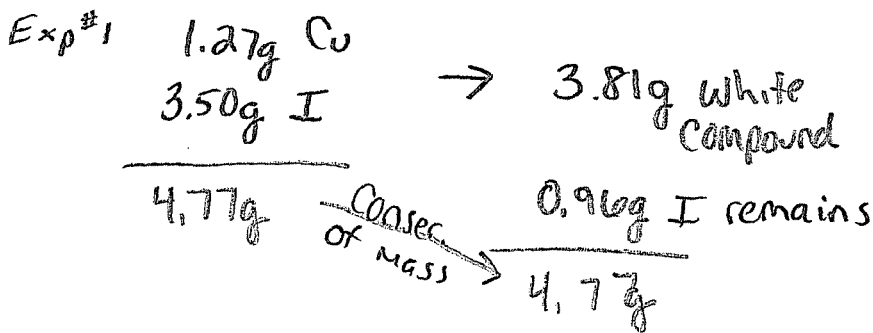 Exp #1 1.27g Cu
3.50g I → 3.81g White Compound
4.77g Consec. of Mass 0.96g I remains
4.77g